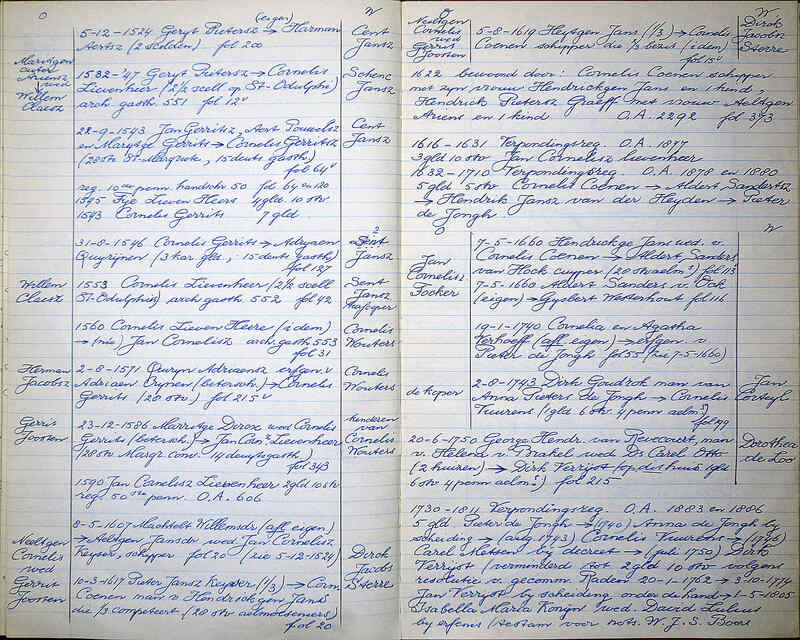 O
W
(eigen)
5-12-1524 Geryt Pietersz → Harman
Aertsz (2 sc(h)ilden) fol 200
Cent
Jansz
Maritgen
Willem
Claesz
1532-'47 Geryt Pietersz → Cornelis
Lievenheer (2½ scell op St-Odulphi)
arch. gasth. 551 fol 12v
Jansz
22-9-1543 Jan Gerritsz, Aert Pouwelsz
en Marytge Gerrits → Cornelis Gerritsz
(28 stv St-Margriete, 15 deuts gasth)
fol 64v
Cent
Jansz
reg. 10de penn. handschr. 50 fol 64 en 120
1545 Fije Lieven Heers 4 gld. 10 stv
1543 Cornelis Gerrits 7 gld.
31-8-1546 Cornelis Gerrits → Adryaen
Quyrijnen (3 kar gld, 15 deuts gasth)
fol 127
Jansz
Willem
Claesz
1553 Cornelis Lievenheer (2½ scell
St-Odulphis) arch. gasth 552 fol 42
Sent
Jansz
1560 Cornelis Lieven Heere (idem)
→ (nie) Jan Cornelisz arch. gasth. 553
fol 31
Cornelis
Wouters
Herman
Jacobsz
2-8-1571 Quryn Adriaensz erfgen. v
Adriaen Crynen (beterock.) → Cornelis
Gerrits (20 stv) fol 215v
Cornelis
Wouters
Gerrit
Joosten
23-12-1586 Marritge Dircx wed Cornelis
Gerrits (beterock.) → Jan Corn.s Lievenheer
(28 stv Margr. conv. 14 deuts gasth)
fol 343
kinderen
van
Cornelis
Wouters
1590 Jan Cornelisz Lievenheer 2 gld 10 stv
reg. 50ste penn. O.A. 606
Neeltgen
Cornelis
wed
Gerrit
Joosten
8-5-1607 Machtelt Willemsdr (afl. eigen)
→ Aeltgen Jansdr wed Jan Cornelisz
Keyser, schipper fol 20 (zie 5-12-1524)
10-3-1617 Pieter Jansz Keyser (1/3) → Corn
Coenen man v. Hendrickgen Jans
die 1/3 competeert (28 stv aelmoeseniers)
fol 20
Dirck
Jacobs
Sterre
O
W
Neeltgen
Cornelis
wed
Gerrit
Joosten
5-8-1619 Heyltgen Jans (1/3) → Cornelis
Coenen schipper die 2/3 bezit (idem)
fol 15v
Dirck
Jacobsz
Sterre
1622 bewoond door: Cornelis Coenen schipper
met zyn vrouw Hendrickgen Jans en 1 kind,
Hendrick Pietersz Graeff met vrouw Aeltgen
Ariens en 1 kind O.A. 2292 fol 373
1616-1631 Verpondingsreg. O.A. 1877
3 gld 10 stv Jan Cornelisz Lievenheer
1632-1710 Verpondingsreg. O.A. 1878 en 1880
5 gld 5 stv Cornelis Coenen → Aldert Sandertsz
→ Hendrik Jansz van der Heyden → Pieter
de Jongh.
O
W
Jan
Cornelisz
Focker
7-5-1660 Hendrickge Jans wed. v.
Cornelis Coenen → Aldert Sanders
van Hoek cuyper (20 stv aelm.) fol 113
7-5-1660 Aldert Sanders v. Hoek
(eigen) → Gysbert Westerhout fol 116
19-1-1740 Cornelia en Agatha
Verhoeff (afl. eigen) → erfgen. v
Pieter de Jongh fol 55 (zie 7-5-1660)
de koper
2-8-1743 Dirk Goudrok man van
Anna Pieters de Jongh → Cornelis
Vuurens (1 gld 6 stv 4 penn aelm.)
fol 49
Jan
20-6-1750 George Hendr. van Revecourt, man
v. Helena v. Brakel wed Ds Carel Otto
(2 huizen) → Dirk Verrijst (op dit huis 1 gld
6 stv 4 penn aelm.) fol 215
Dorothea
de Loo
1730-1811 Verpondingsreg. O.A. 1883 en 1886
5 gld. Pieter de Jongh → (1740) Anna de Jongh by
scheiding → (aug 1743) Cornelis Vuurens → (1746)
Carel Metten by decreet → (juli 1750) Dirk
Verrijst (verminderd tot 2 gld 10 stv volgens
resolutie v. gecomm. Raden 20-1-1762 → 3-10-1774
Jan Verrijst by scheiding onder de hand → 1-5-1805
Isabella Maria Konijn wed. David Lulius
by erfenis (testam voor nots. W.J.S. Boers